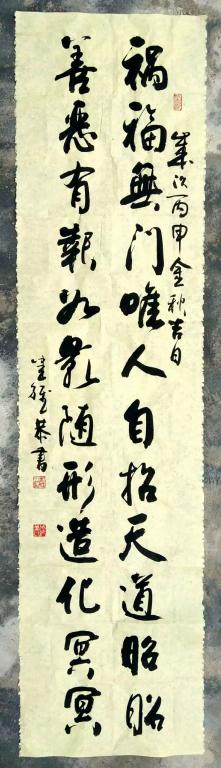 歲次丙申金秋吉日
祸福無门唯人自招天道昭昭
善恶有報如影随形造化冥冥
恭書